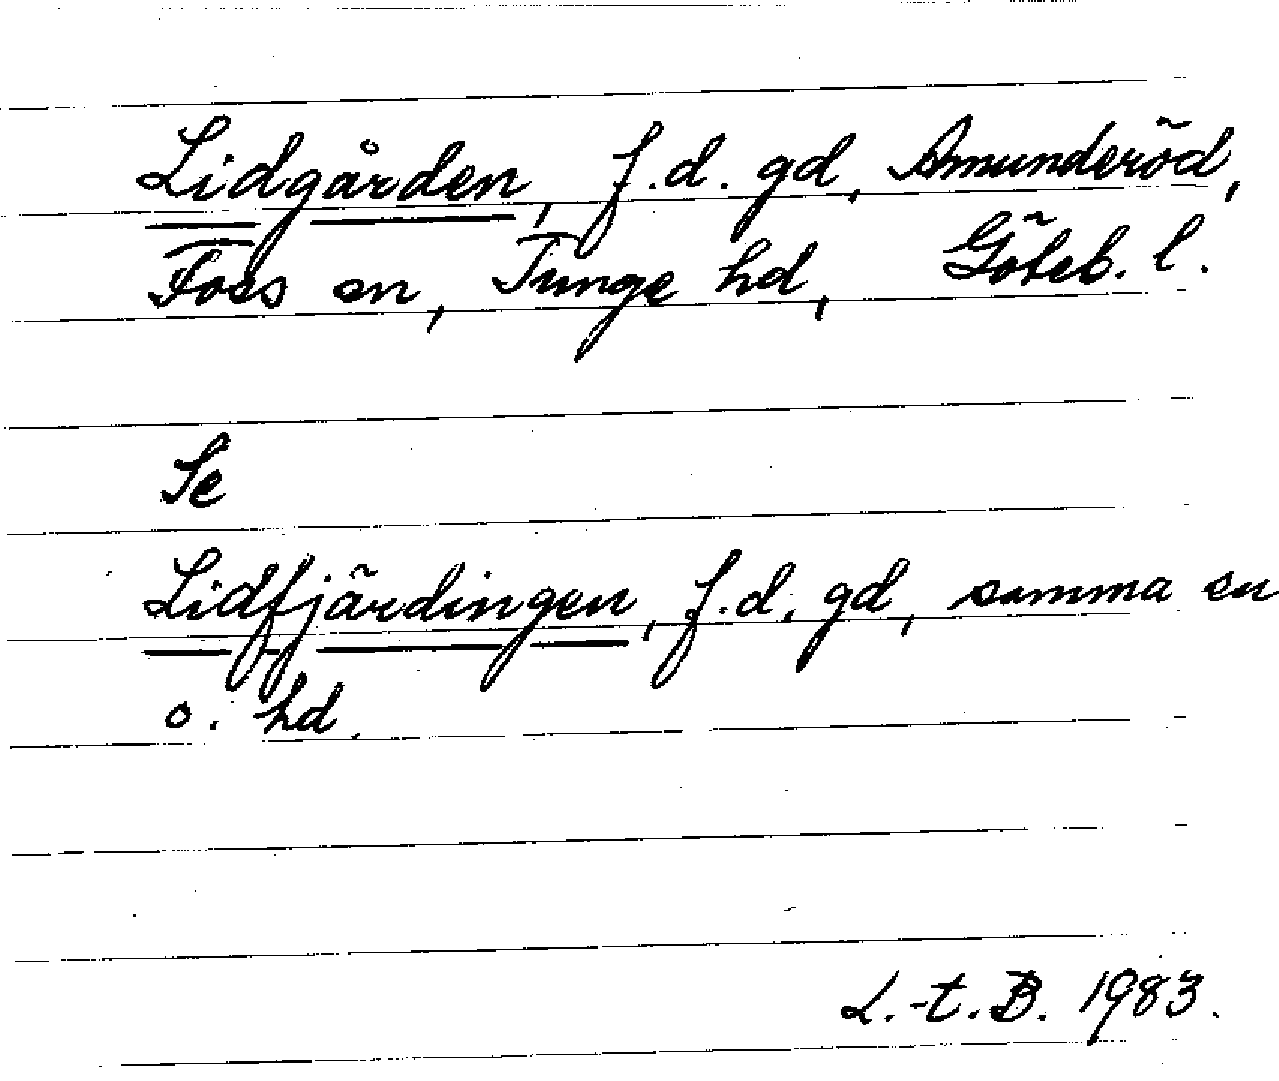 Lidgården, f.d. gd, Amunderöd,
Foss sn, Tunge hd, Göteb. l.
Se
Lidfjärdingen, f.d. gd, samma sn
o. hd.
L.-t.B. 1983.